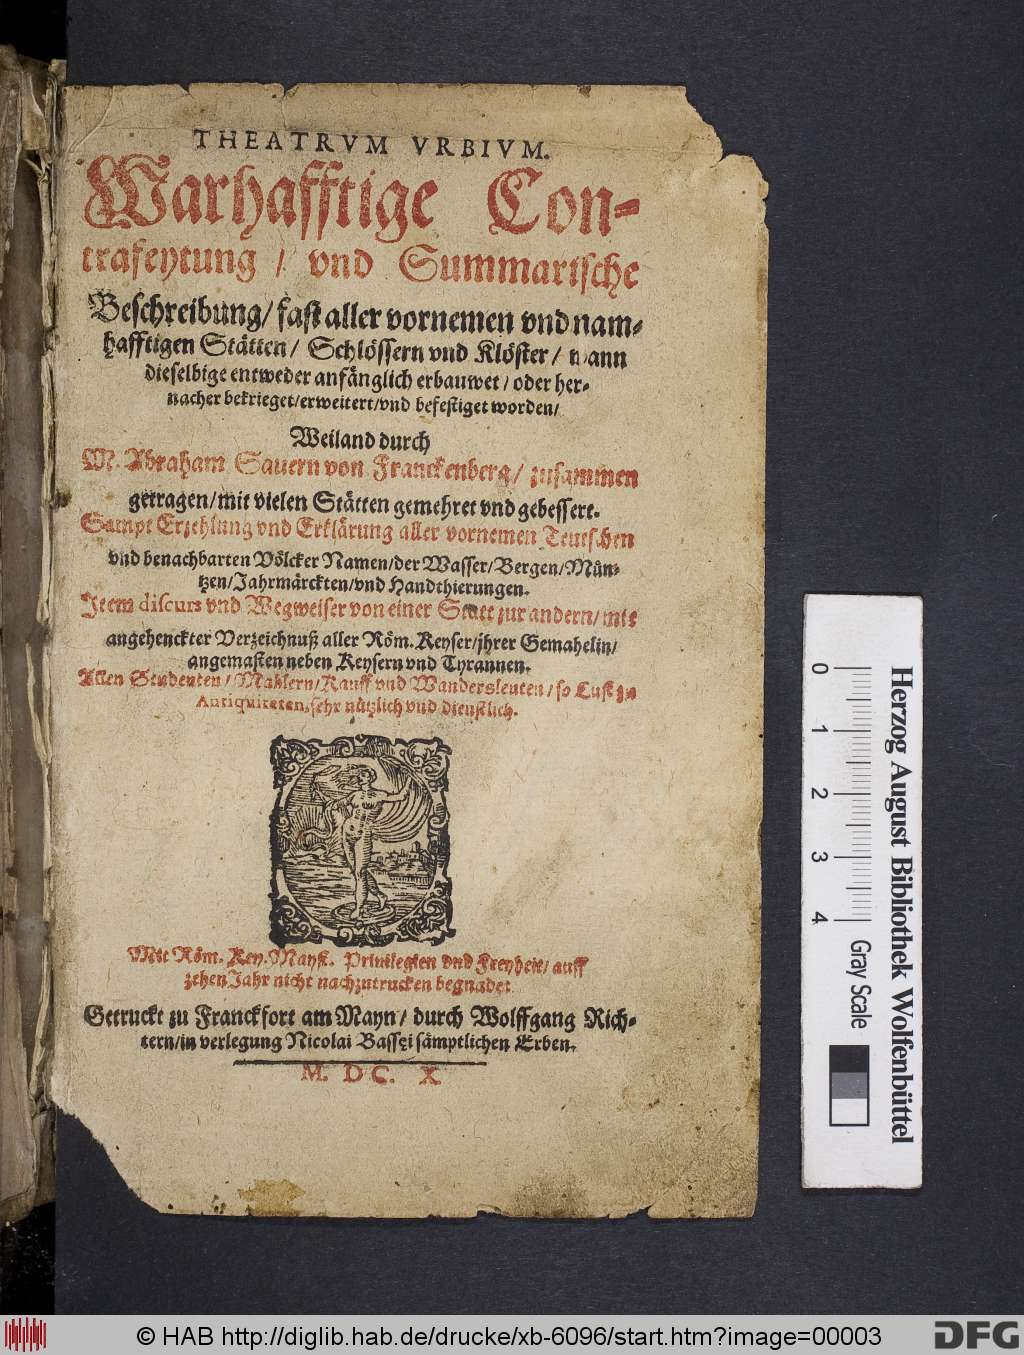 THEATRVM VRBIVM.
Warhafftige Con-
trafeytung / vnd Summarische
Beschreibung / fast aller vornemen vnd nam-
hafftigen Stätten / Schlössern vnd Klöster / wann
dieselbige entweder anfänglich erbauwet / oder her-
nacher bekrieget / erweitert / vnd befestiget worden /
Weiland durch
M. Abraham Sauern von Franckenberg / zusammen
getragen / mit vielen Stätten gemehret vnd gebessert.
Sampt Erzehlung vnd Erklärung aller vornemen Teutschen
vnd benachbarten Völcker Namen / der Wasser / Bergen / Mün-
tzen / Jahrmärckten / vnd Handthierungen.
Item discurs vnd Wegweiser von einer Statt zur andern / mit
angehenckter Verzeichnuß aller Röm. Keyser / jhrer Gemahelin /
angemasten neben Keysern vnd Tyrannen.
Allen Studenten / Mahlern / Kauff vnd Wandersleuten / so Lust zu
Antiquiteten, sehr nützlich vnd dienstlich.
Mit Röm. Key. Mayst. Priuilegien vnd Freyheit / auff
zehen Jahr nicht nachzutrucken begnadet
Getruckt zu Franckfort am Mayn / durch Wolffgang Rich-
tern / in verlegung Nicolai Bassei sämptlichen Erben.
M. DC. X
0 1 2 3 4
Gray Scale
Herzog August Bibliothek Wolfenbüttel
© HAB http://diglib.hab.de/drucke/xb-6096/start.htm?image=00003
DFG